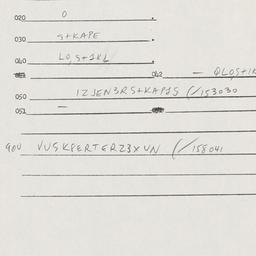 020 O
030 S+KAPE
040 LO,S+1KL
042 — QLO,S+1K
050 1ZJEN3RS+KAPJS (/153030
052 —
900 VUSKPERTERZ3XUN (/158041